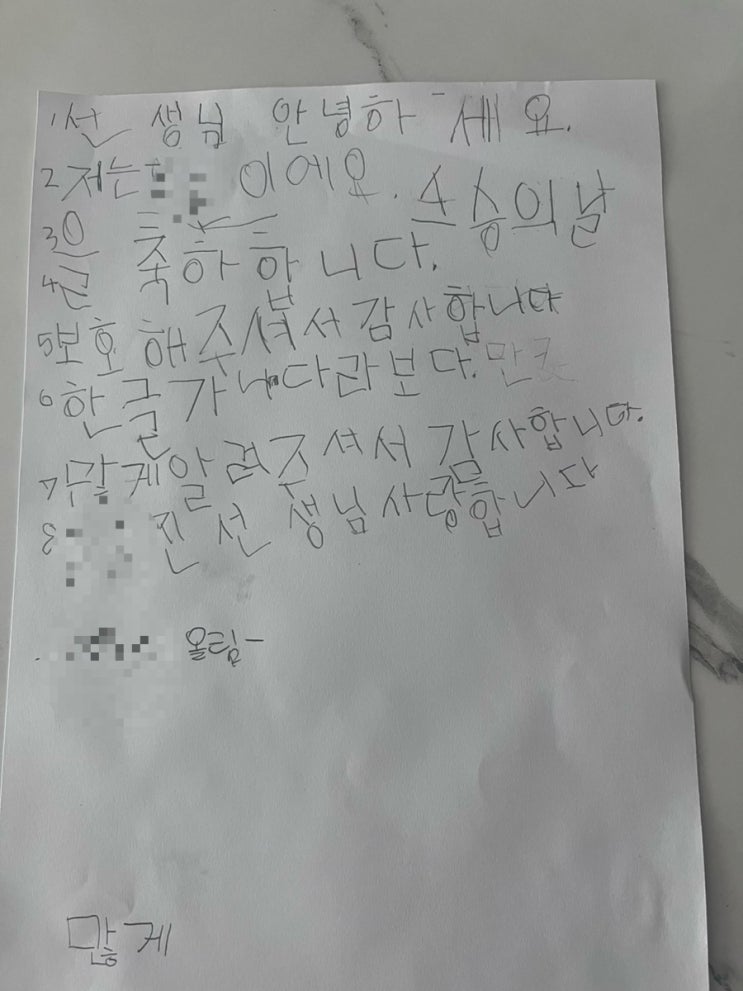 1 선생님 안녕하세요.
2 저는 이에요. 스승의날
3 은 축하합니다.
4 근
5 보호해주셔서 감사합니다
6 한글 가나다라보다.
7 많게알려주셔서 감사합니다.
8 진 선생님사랑합니다
올림-
많게